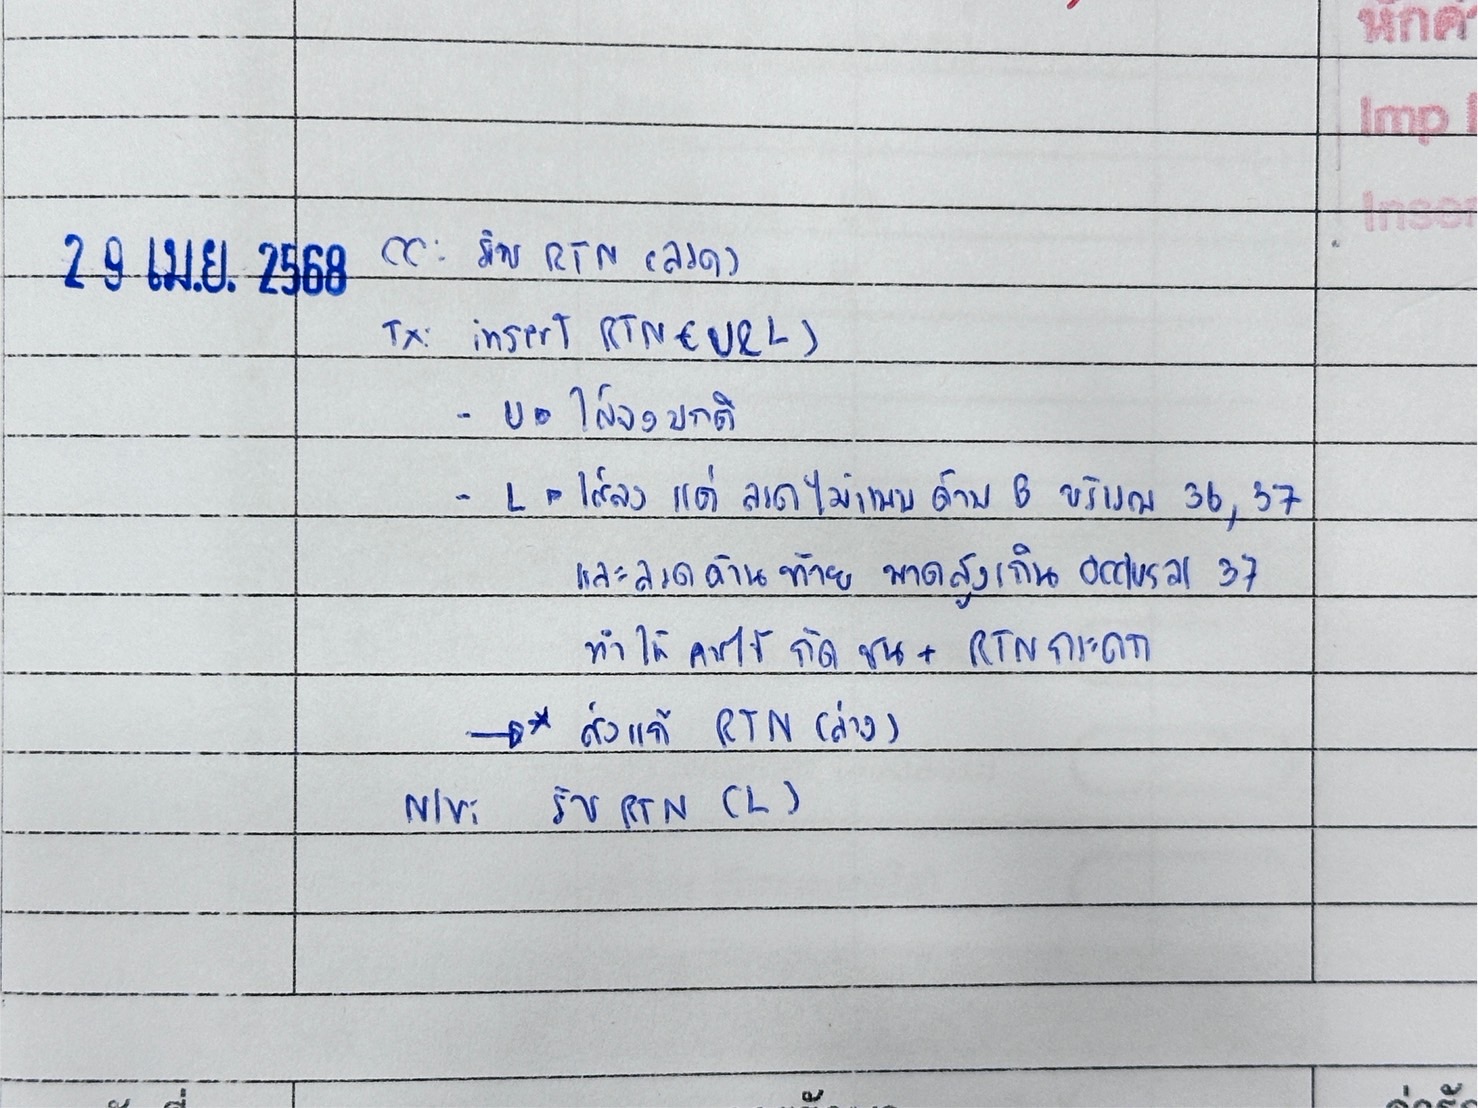 หักค่
Imp
Inser
29 เม.ย. 2568 CC: รับ RTN (ลวด)
Tx: insert RTN (U&L)
- U → ใส่ลงปกติ
- L → ใส่ลง แต่ ลวดไม่แนบ ด้าน B บริเวณ 36, 37
และลวดด้านท้าย พาดสูงเกิน occlusal 37
ทำให้ คนไข้ กัด ชน + RTN กระดก
→* ส่งแก้ RTN (ล่าง)
N/V: รับ RTN (L)